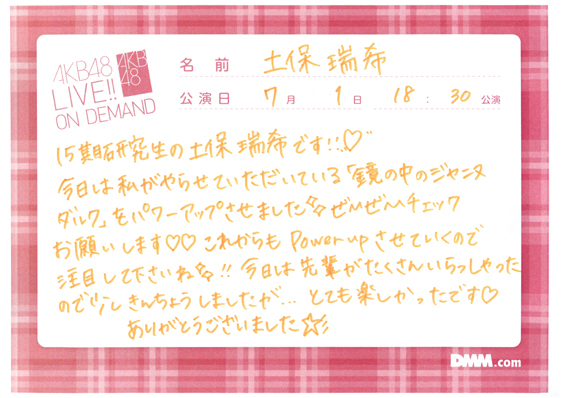 AKB48
LIVE!!
ON DEMAND
AKB
48
名 前 土保 瑞希
公演日 7月 1日 18:30 公演
15期研究生の土保瑞希です!!♡
今日は私がやらせていただいている「鏡の中のジャンヌ
ダルク」をパワーアップさせました☆ぜひぜひチェック
お願いします♡♡これからもPower upさせていくので
注目して下さいね☆!!今日は先輩がたくさんいらっしゃった
ので少しきんちょうしましたが...とても楽しかったです♡
ありがとうございました☆
DMM.com